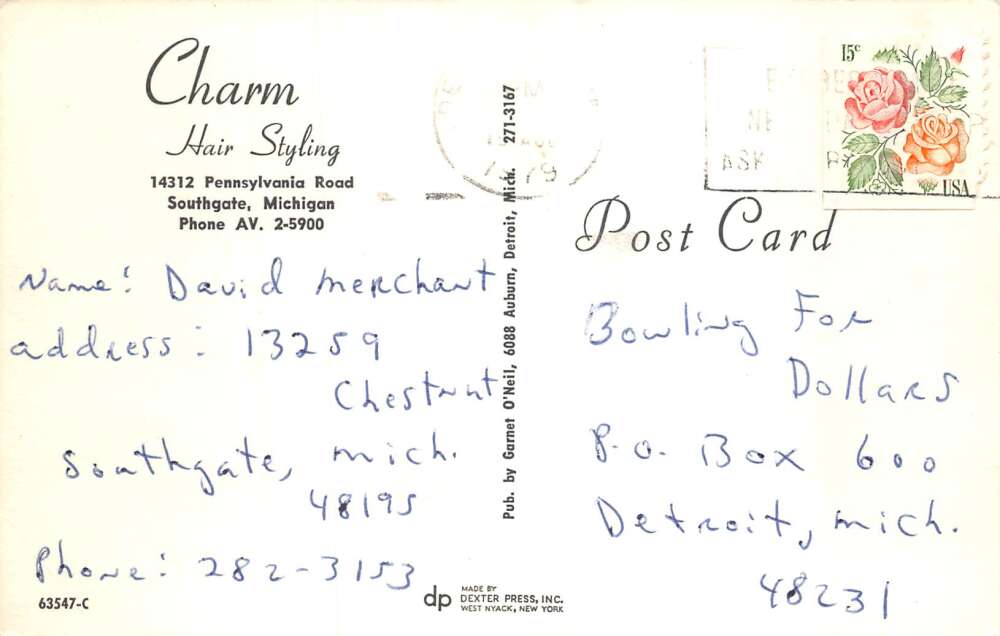 Charm
Hair Styling
14312 Pennsylvania Road
Southgate, Michigan
Phone AV. 2-5900
Name: David Merchant
address: 13259
Chestnut
Southgate, Mich.
48195
Phone: 282-3153
63547-C
Pub. by Garnet O'Neil, 6088 Auburn, Detroit, Mich. 271-3167
dp
MADE BY
DEXTER PRESS, INC.
WEST NYACK, NEW YORK
1979
ASK
15c
USA
Post Card
Bowling For
Dollars
P.O. Box 600
Detroit, Mich.
48231